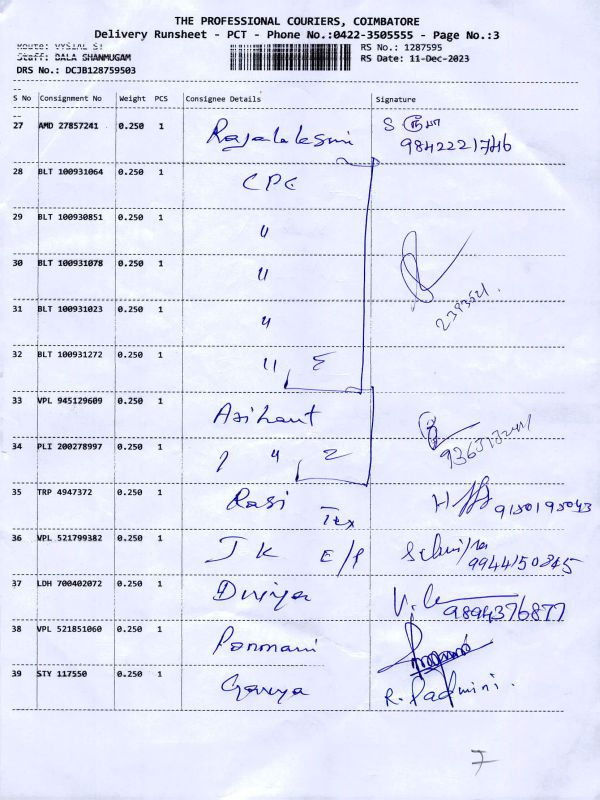 THE PROFESSIONAL COURIERS, COIMBATORE
Delivery Runsheet - PCT - Phone No.:0422-3505555 - Page No.:3
Route: VYSIAL ST
RS No.: 1287595
Staff: BALA SHANMUGAM
RS Date: 11-Dec-2023
DRS No.: DCJB128759503
S No Consignment No Weight PCS Consignee Details Signature
27 AMD 27857241 0.250 1 Rajalaksmi S
9842221746
28 BLT 100931064 0.250 1 CPC
29 BLT 100930851 0.250 1 "
30 BLT 100931078 0.250 1 "
31 BLT 100931023 0.250 1 "
32 BLT 100931272 0.250 1 " 5
33 VPL 945129609 0.250 1 Asihant
34 PLI 200278997 0.250 1 " 2
35 TRP 4947372 0.250 1 Rasi Tex 9150195043
36 VPL 521799382 0.250 1 JK E/P
9944150845
37 LDH 700402072 0.250 1 Diviya
9894376877
38 VPL 521851060 0.250 1 Ponmani
39 STY 117550 0.250 1 R. Padmini.
7